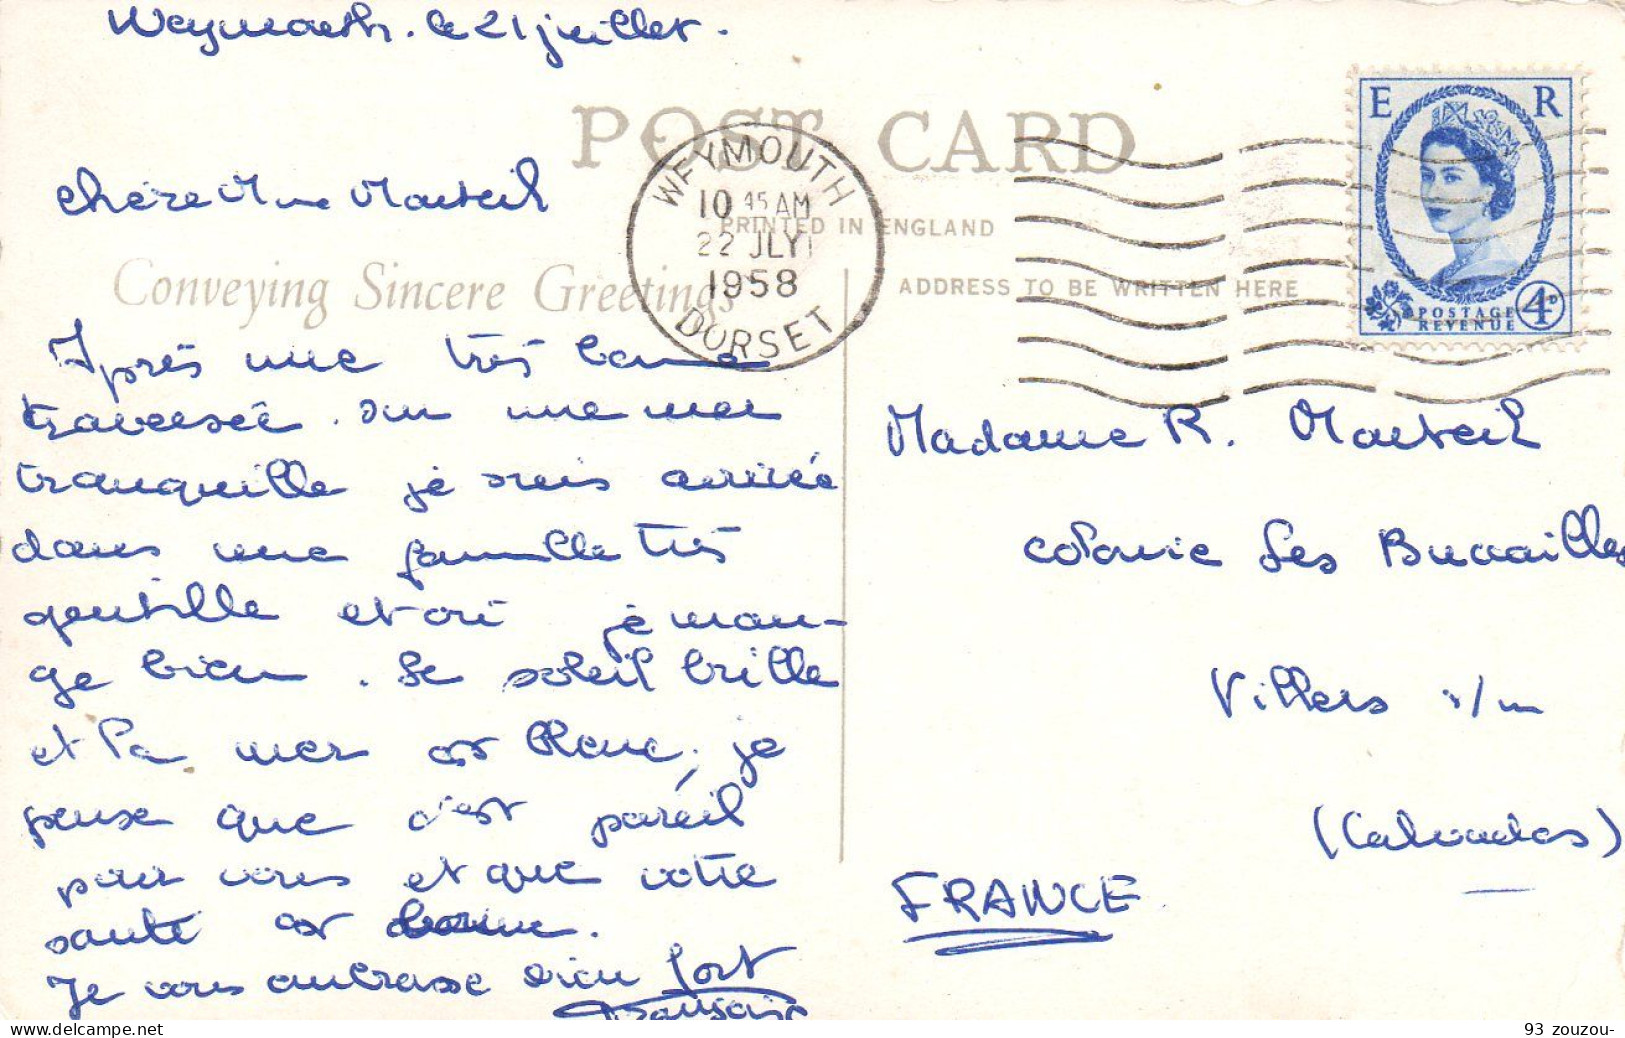 Weymouth. le 21 juillet.
POST CARD
WEYMOUTH
10 45 AM
22 JLY
1958
DORSET
E R
POSTAGE
REVENUE
4D
PRINTED IN ENGLAND
ADDRESS TO BE WRITTEN HERE
Chère Mme Marteil
Conveying Sincere Greetings
Après une très bonne
traversée sur une mer
tranquille je suis arrivée
dans une famille très
gentille et où je man-
ge bien. Le soleil brille
et la mer est bleue. je
pense que c'est pareil
pour vous et que votre
santé est bonne.
Je vous embrasse bien fort
Madame R. Marteil
colonie Les Bucailles
Villers s/m
(Calvados)
FRANCE
93 zouzou-
www.delcampe.net